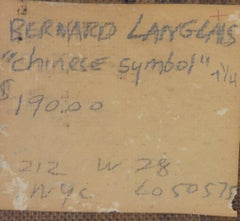 BERNARD LANGLAIS
"chinese symbol"
$
190.00
212 W 28
NYC LO 50575